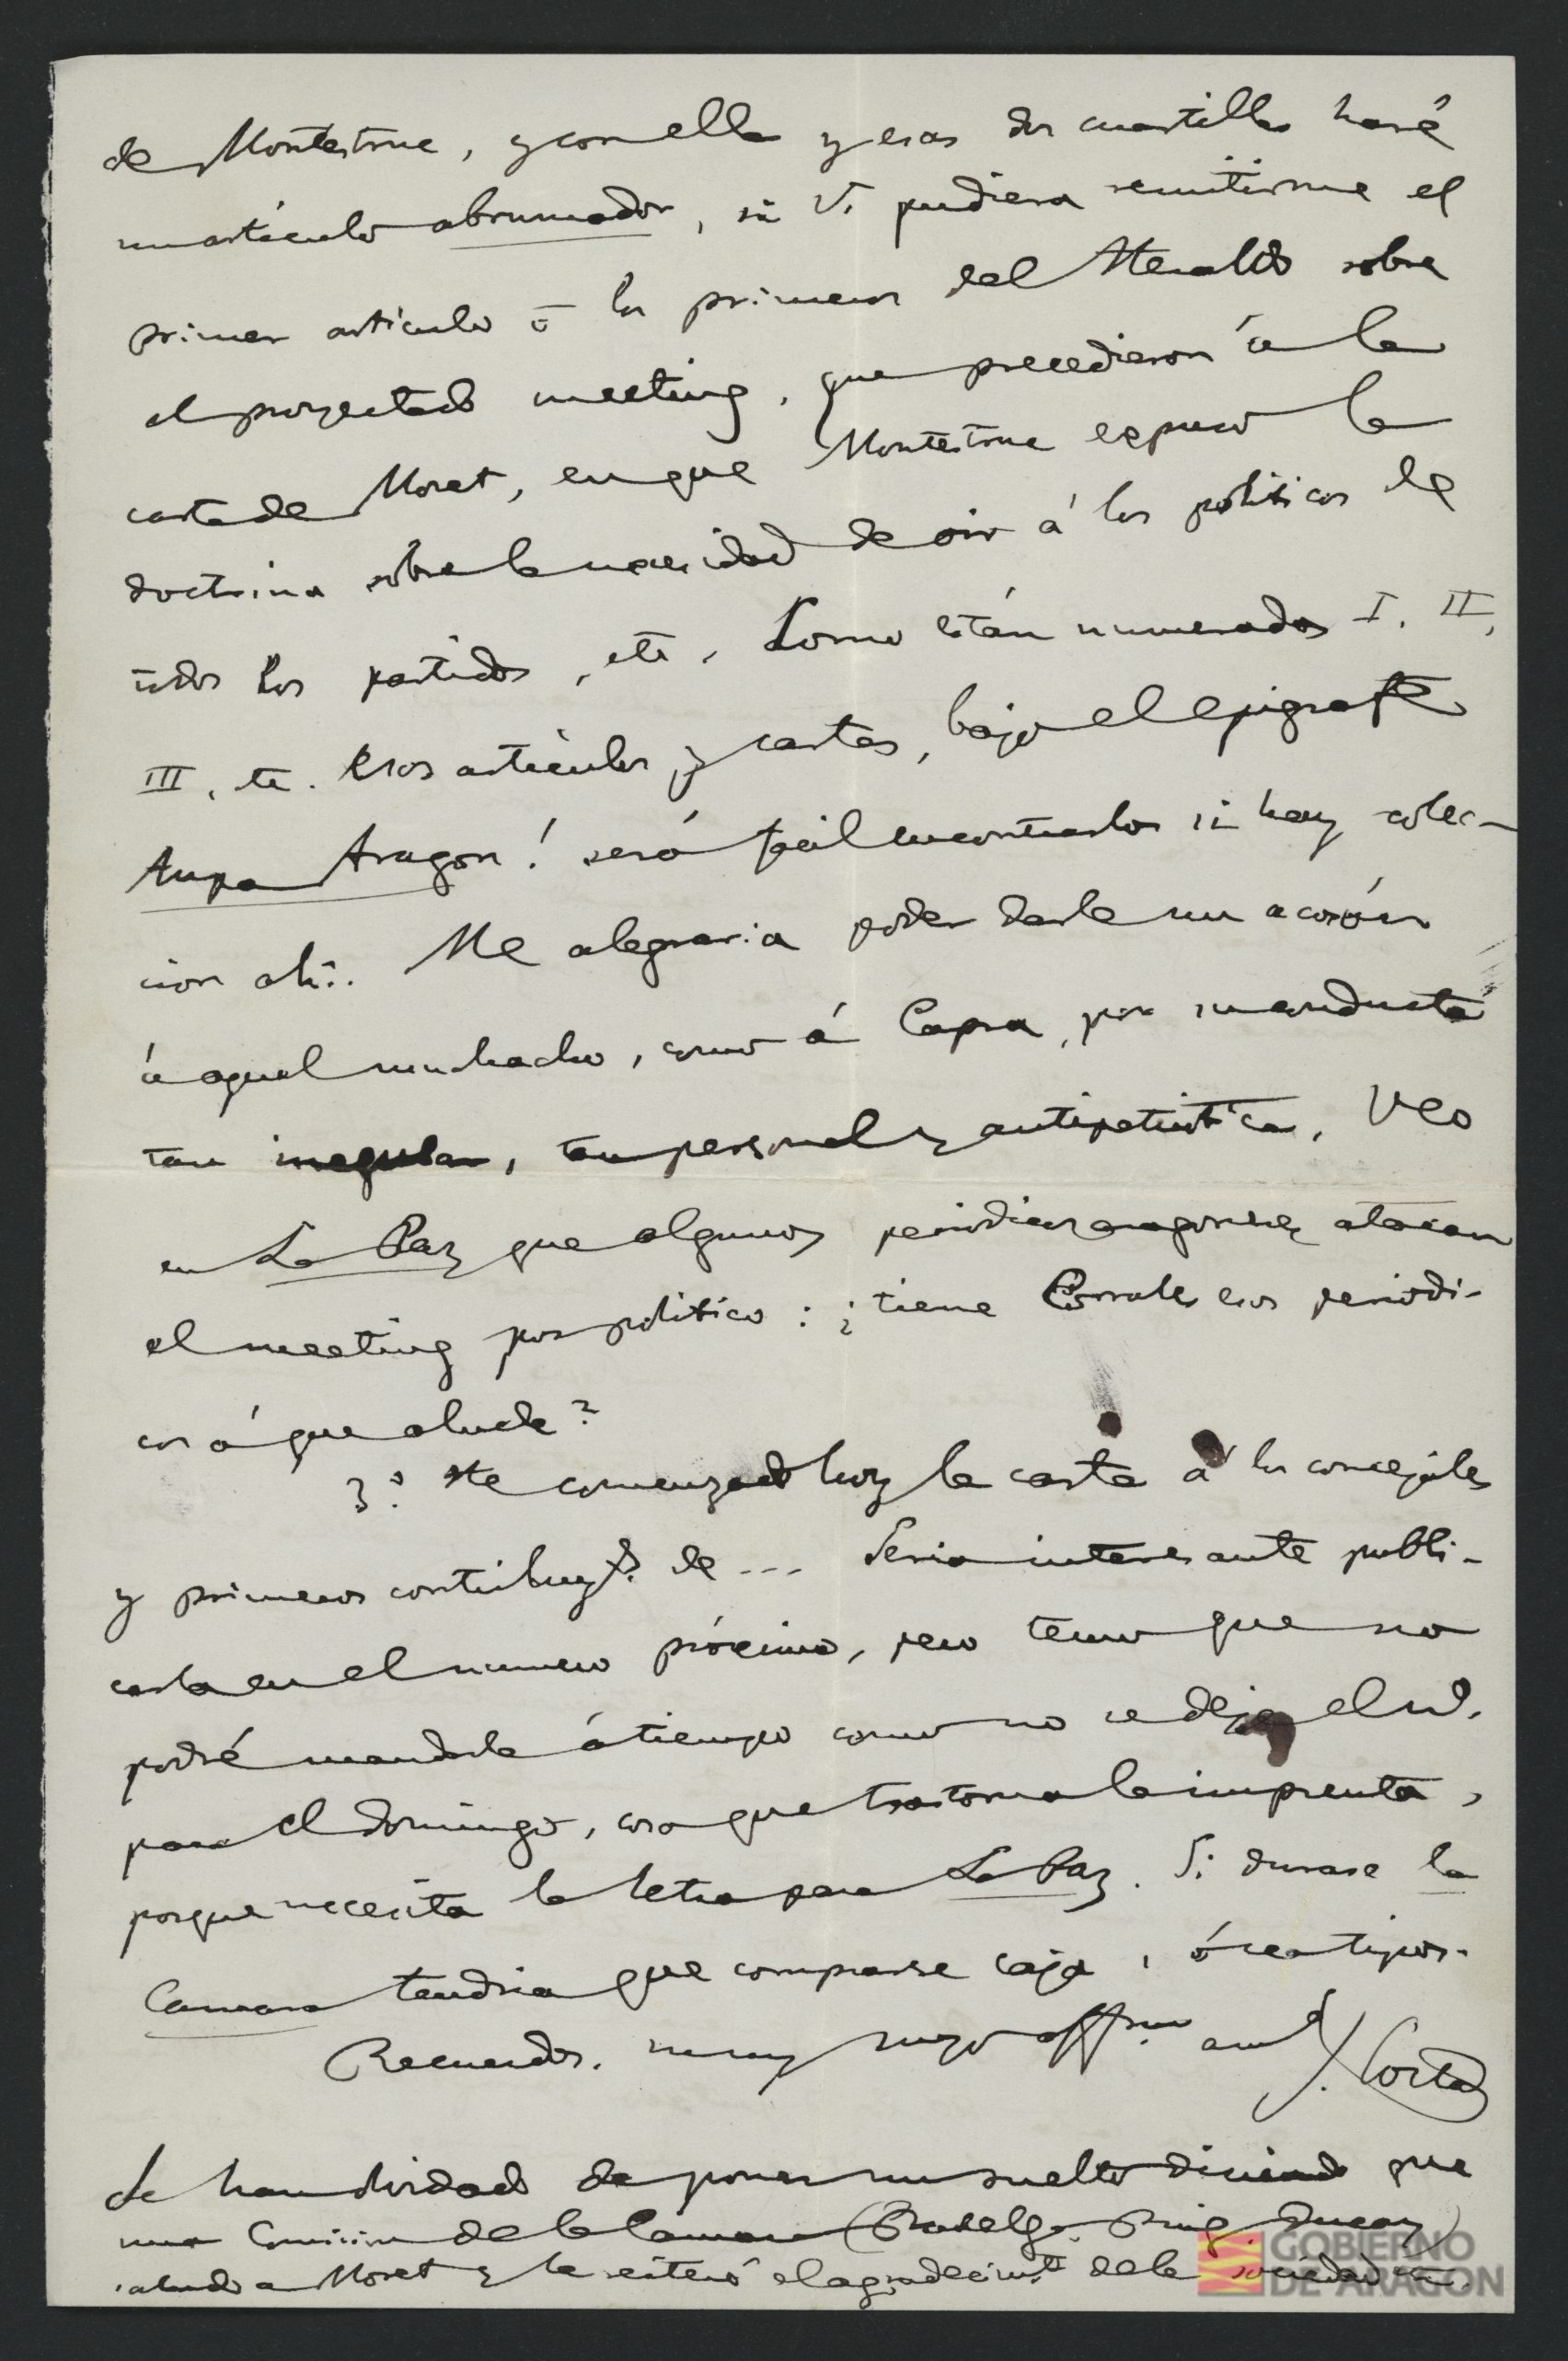 de Montestruc, y con ella y esas dos cuartillas haré
un artículo abrumador, si V. pudiera remitirme el
primer artículo ó los primeros del Heraldo sobre
el proyectado meeting, que precedieron á la
carta de Moret, en que Montestruc expuso la
doctrina sobre la necesidad de oir á los politicos de
todos los partidos, etc. Como están numerados I. II,
III, etc. esos artículos y cartas, bajo el epigrafe
Aupa Aragon! será facil encontrarlos si hay colec-
cion ahí. Me alegraria poder darle un acosón
á aquel muchacho, como á Capra, por su conducta
tan irregular, tan personal y antipatriótica. Veo
en La Paz que algunos periódicos aragoneses atacan
el meeting por politico: ¿tiene Corrales esos periódi-
cos á que alude?
3º He comenzado hoy la carta á los concejales
y primeros contribuy.s de ... Seria interesante publi-
carla en el numero próximo, pero temo que no
podré mandarla á tiempo como no se deje el nº.
para el domingo, cosa que trastorna la imprenta,
porque necesita la letra para La Paz. Si durase la
Camara tendria que comprarse caja, ó sea tipos.
Recuerdos. muy suyo affmo. am.º J. Costa
Se han olvidado de poner un suelto diciendo que
una Comision de la Camara ( Puig, Ducay)
saludó a Moret y le reiteró el agradecimto. de la sociedad
GOBIERNO
DE ARAGON